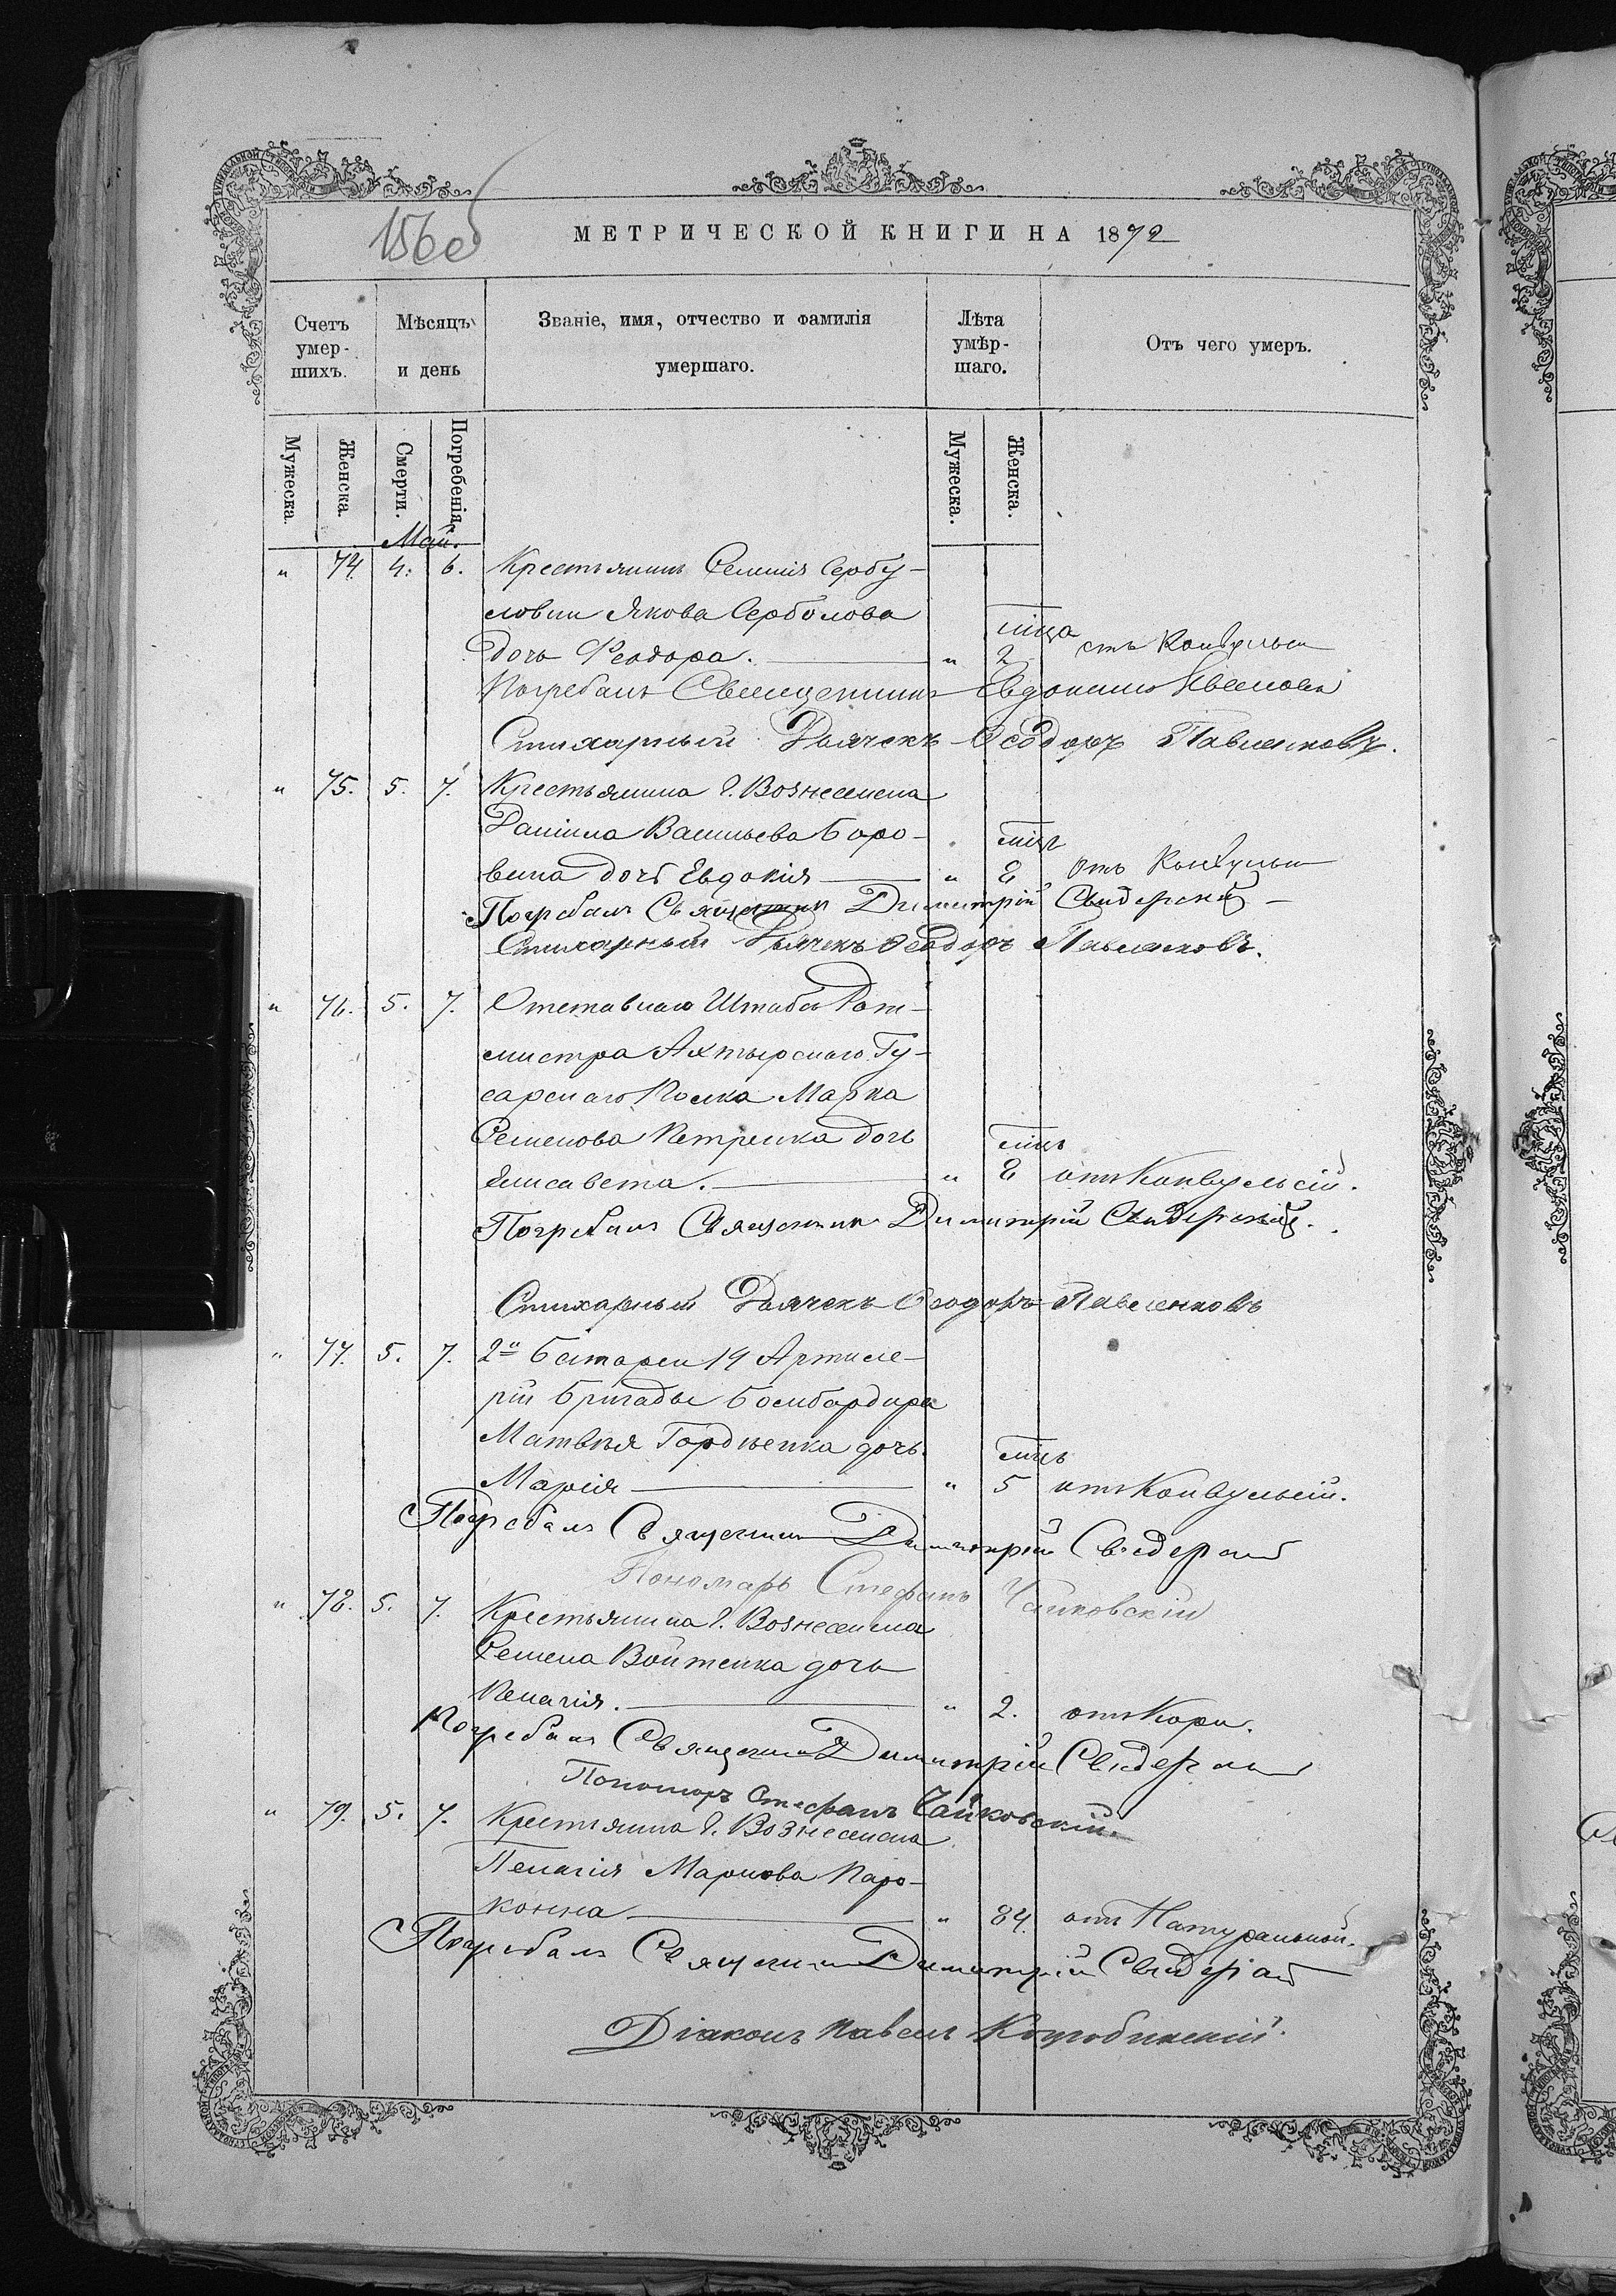 156 об
МЕТРИЧЕСКОЙ КНИГИ НА 1872
Счетъ умер-шихъ.
Мѣсяцъ и день
Званіе, имя, отчество и фамилія умершаго.
Лѣта умѣр-шаго.
Отъ чего умеръ.
Мужеска.
Женска.
Смерти.
Погребенія.
Мужеска.
Женска.
Май.
" 74. 4. 6. Крестьянина Селенія Сербу-
ловки Якова Серболова
дочь Феодора. " 2
Погребалъ Священникъ Евдокимъ
Стихарный Дьячекъ Ѳеодоръ Павленковъ.
" 75. 5. 7. Крестьянина г. Вознесенска
Даніила Васильева Боро-
вика дочь Евдокія " 8 мцъ Отъ Конвульси
Погребалъ Священникъ Димитрій Свидерскій
Стихарный Дьячекъ Ѳеодоръ Павленковъ.
" 76. 5. 7. Отставнаго Штабсъ Рот-
мистра Ахтырскаго Гу-
сарскаго Полка Марка
Семенова Петренка дочь
Елисавета. " 8 мцъ отъ Конвульсій.
Погребалъ Священникъ Димитрій Свидерскій.
Стихарный Дьячекъ Ѳеодоръ Павленковъ
" 77. 5. 7. 2й Батареи 19 Артиле-
рій Бригады Бомбардира
Матвѣя Гордіенка дочь
Марія " 5 мцъ отъ Конвульсій.
Погребалъ Священникъ Димитрій Свидерскій
Пономарь Стефанъ Чайковскій
" 78. 5. 7. Крестьянина г. Вознесенска
Семена Войтенка дочь
Пелагія. " 2. отъ Кори.
Погребалъ Священникъ Димитрій Свидерскій
Пономарь Стефанъ Чайковскій.
" 79. 5. 7. Крестьянка г. Вознесенска
Пелагія Маркова Паро-
конна " 84. отъ Натуральной.
Погребалъ Священникъ Димитрій Свидерскій
Діаконъ Павелъ